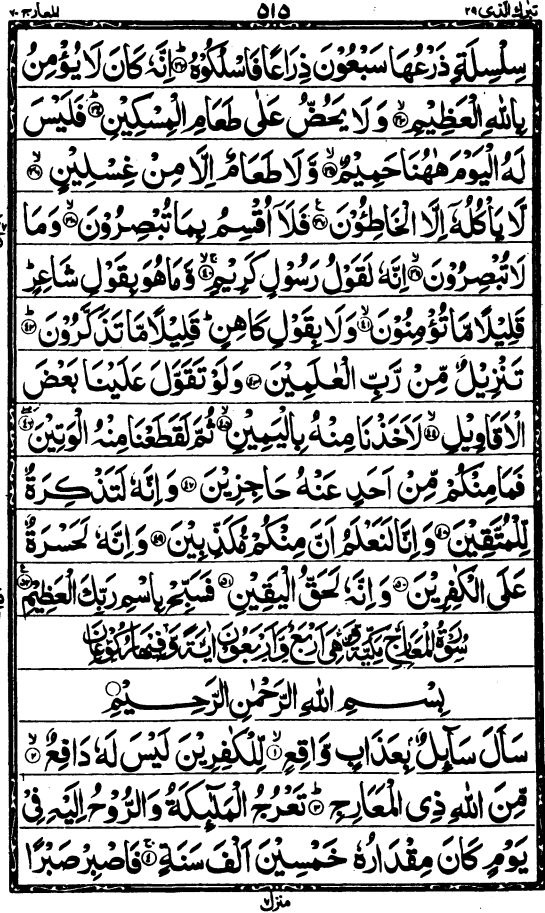 تبرك الذي ٢٩ ٥١٥ المعارج ٧٠
سِلْسِلَةٍ ذَرْعُهَا سَبْعُوْنَ ذِرَاعًا فَاسْلُكُوْهُ ؕ﴿۳۲﴾ اِنَّهٗ كَانَ لَا يُؤْمِنُ
بِاللّٰهِ الْعَظِيْمِ ۙ﴿۳۳﴾ وَلَا يَحُضُّ عَلٰى طَعَامِ الْمِسْكِيْنِ ؕ﴿۳۴﴾ فَلَيْسَ
لَهُ الْيَوْمَ هٰهُنَا حَمِيْمٌ ۙ﴿۳۵﴾ وَّلَا طَعَامٌ اِلَّا مِنْ غِسْلِيْنٍ ۙ﴿۳۶﴾
لَّا يَاْكُلُهٗۤ اِلَّا الْخَاطِـُٔوْنَ ﴿۳۷﴾ فَلَاۤ اُقْسِمُ بِمَا تُبْصِرُوْنَ ۙ﴿۳۸﴾ وَمَا
لَا تُبْصِرُوْنَ ۙ﴿۳۹﴾ اِنَّهٗ لَقَوْلُ رَسُوْلٍ كَرِيْمٍ ۚ﴿۴۰﴾ وَّمَا هُوَ بِقَوْلِ شَاعِرٍ ؕ
قَلِيْلًا مَّا تُؤْمِنُوْنَ ۙ﴿۴۱﴾ وَلَا بِقَوْلِ كَاهِنٍ ؕ قَلِيْلًا مَّا تَذَكَّرُوْنَ ؕ﴿۴۲﴾
تَنْزِيْلٌ مِّنْ رَّبِّ الْعٰلَمِيْنَ ﴿۴۳﴾ وَلَوْ تَقَوَّلَ عَلَيْنَا بَعْضَ
الْاَقَاوِيْلِ ۙ﴿۴۴﴾ لَاَخَذْنَا مِنْهُ بِالْيَمِيْنِ ۙ﴿۴۵﴾ ثُمَّ لَقَطَعْنَا مِنْهُ الْوَتِيْنَ ۖ﴿۴۶﴾
فَمَا مِنْكُمْ مِّنْ اَحَدٍ عَنْهُ حَاجِزِيْنَ ﴿۴۷﴾ وَاِنَّهٗ لَتَذْكِرَةٌ
لِّلْمُتَّقِيْنَ ﴿۴۸﴾ وَاِنَّا لَنَعْلَمُ اَنَّ مِنْكُمْ مُّكَذِّبِيْنَ ﴿۴۹﴾ وَاِنَّهٗ لَحَسْرَةٌ
عَلَى الْكٰفِرِيْنَ ﴿۵۰﴾ وَاِنَّهٗ لَحَقُّ الْيَقِيْنِ ﴿۵۱﴾ فَسَبِّحْ بِاسْمِ رَبِّكَ الْعَظِيْمِ ﴿۵۲﴾
سُوْرَةُ الْمَعَارِجِ مَكِّيَّةٌ وَّهِيَ اَرْبَعٌ وَّاَرْبَعُوْنَ اٰيَةً وَّفِيْهَا رُكُوْعَانِ
بِسْمِ اللّٰهِ الرَّحْمٰنِ الرَّحِيْمِ
سَاَلَ سَآىِٕلٌۢ بِعَذَابٍ وَّاقِعٍ ۙ﴿۱﴾ لِّلْكٰفِرِيْنَ لَيْسَ لَهٗ دَافِعٌ ۙ﴿۲﴾
مِّنَ اللّٰهِ ذِي الْمَعَارِجِ ؕ﴿۳﴾ تَعْرُجُ الْمَلٰٓىِٕكَةُ وَالرُّوْحُ اِلَيْهِ فِيْ
يَوْمٍ كَانَ مِقْدَارُهٗ خَمْسِيْنَ اَلْفَ سَنَةٍ ۚ﴿۴﴾ فَاصْبِرْ صَبْرًا
منزل ٧